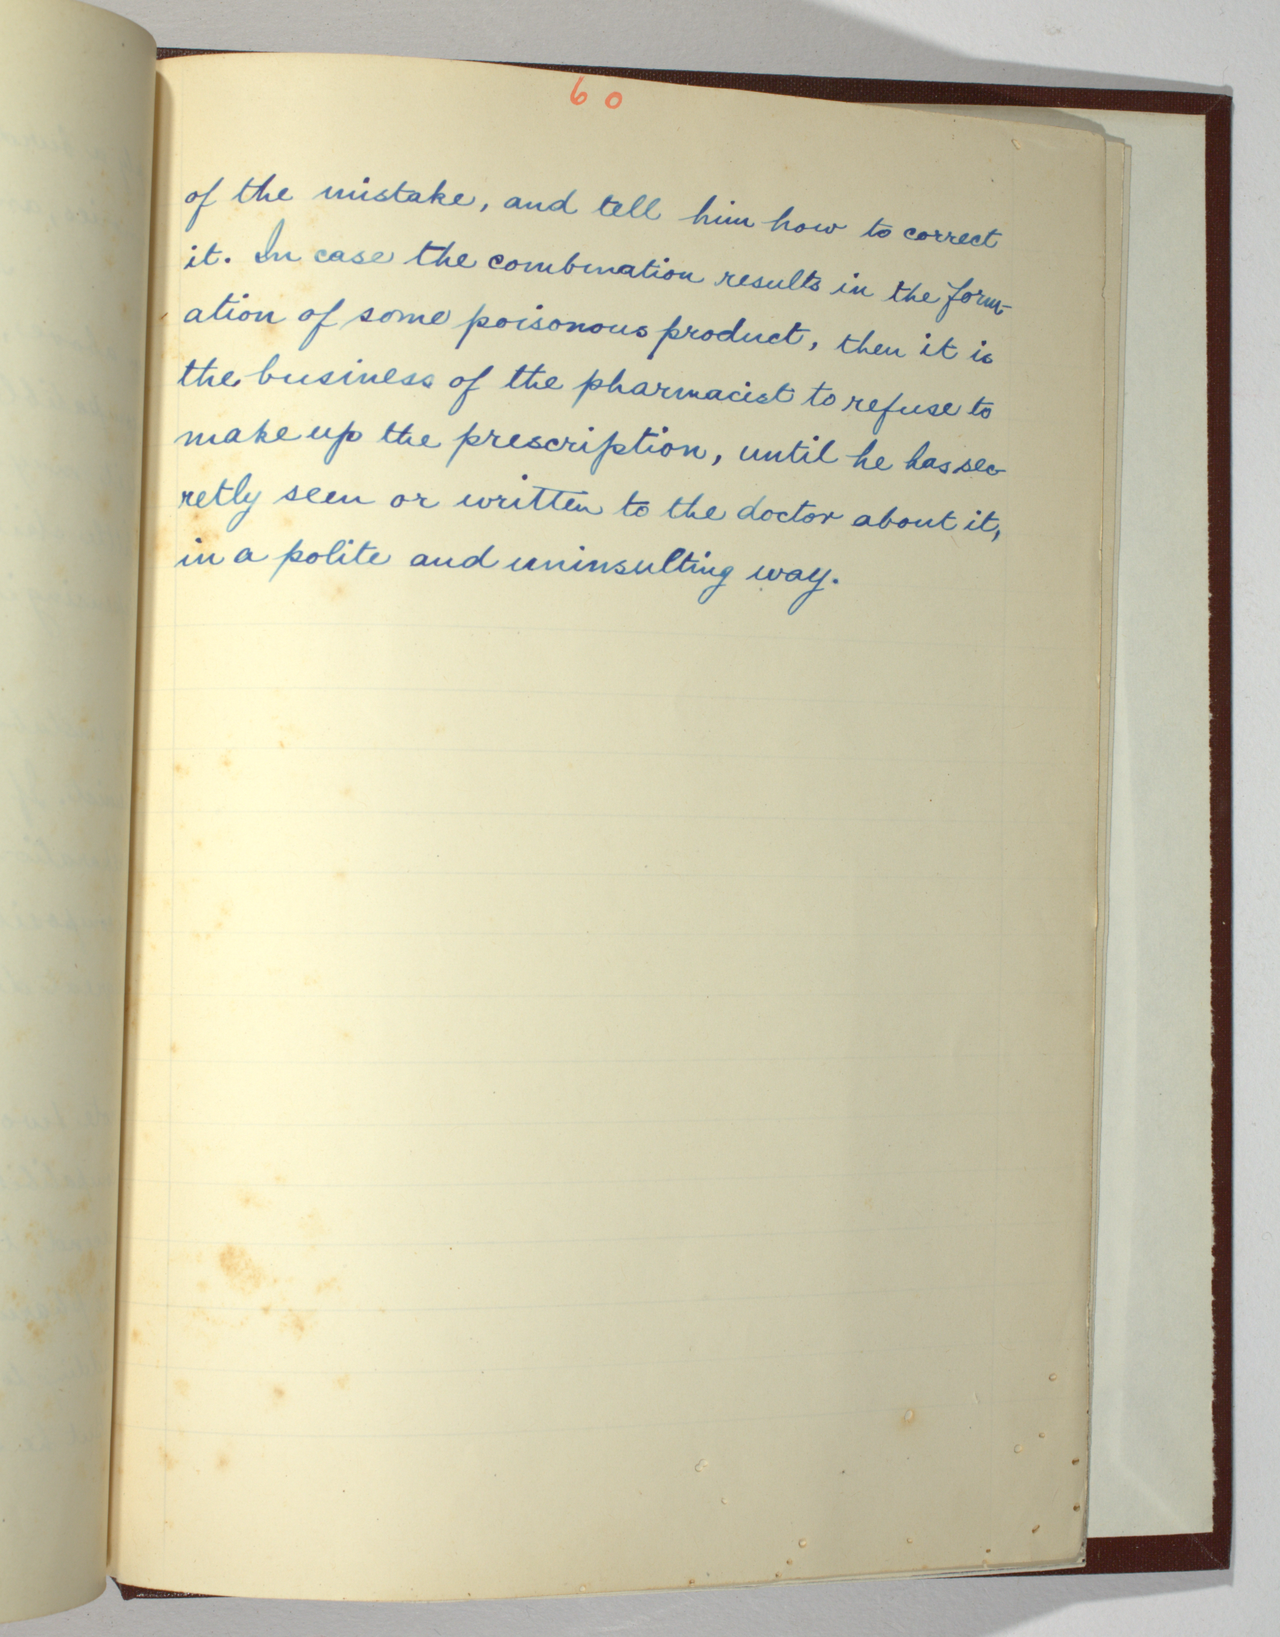 60
of the mistake, and tell him how to correct
it. In case the combination results in the form-
ation of some poisonous product, then it is
the business of the pharmacist to refuse to
make up the prescription, until he has sec-
retly seen or written to the doctor about it,
in a polite and uninsulting way.